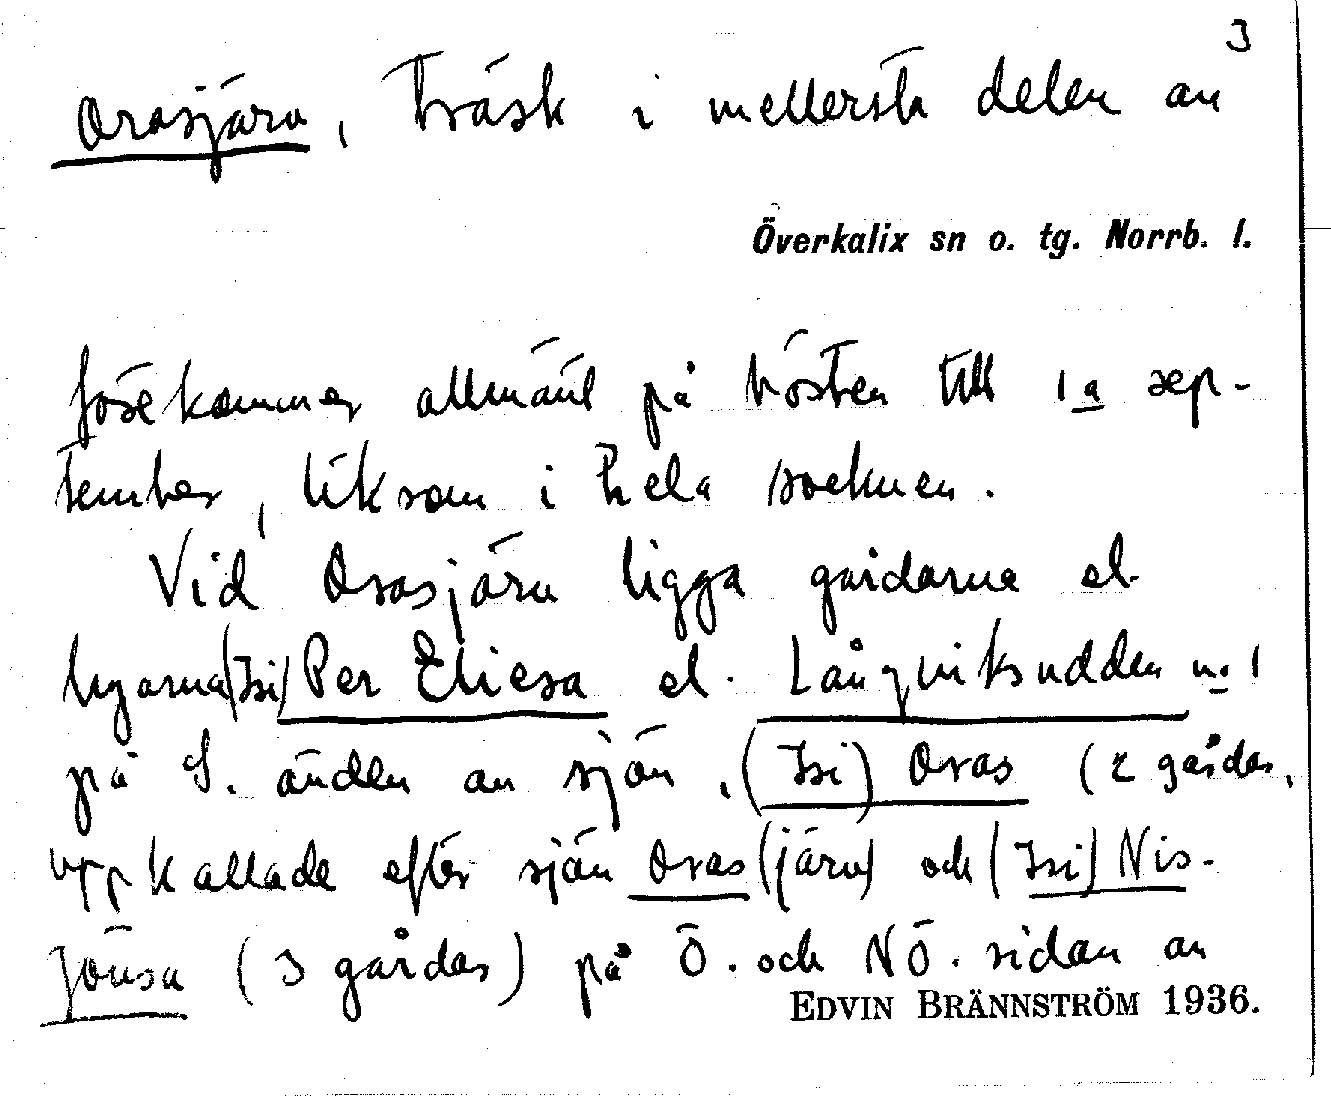 3
Orasjärv, träsk i mellersta delen av
Överkalix sn o. tg. Norrb. l.
förekommer allmänt på hösten till 1a sep-
tember, liksom i hela socknen.
Vid Orasjärv ligga gårdarna el.
byarna (Isi) Per Eliesa el. Långviksudden n:o 1
på S. änden av sjön, (Isi) Oras (2 gårdar,
uppkallade efter sjön Oras(järv) och (Isi) Nis-
Jönsa (3 gårdar) på Ö. och NÖ. sidan av
EDVIN BRÄNNSTRÖM 1936.